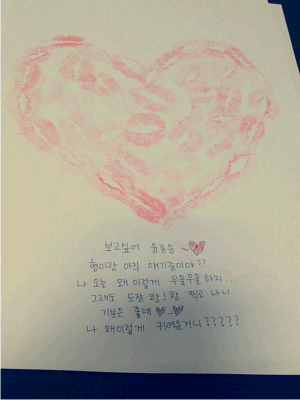 보고싶어 윤준승 ~♡
형이랑 아직 얘기중이야??
나 오늘 왜 이렇게 우물우물 하지..
그래도 도장 쾅!쾅 찍고 나니
기분은 좋네 ♡_♡
나 왜이렇게 귀여운거니?????